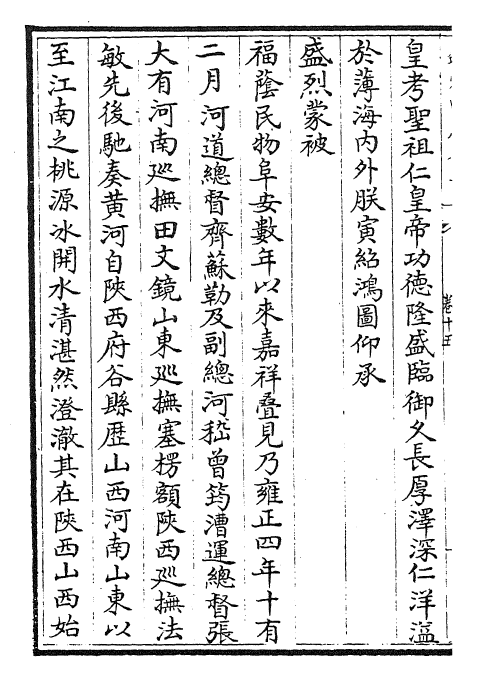 皇考聖祖仁皇帝功德隆盛臨御久長厚澤深仁洋溢
於薄海内外朕寅紹鴻圖仰承
盛烈蒙被
福蔭民物阜安數年以來嘉祥疊見乃雍正四年十有
二月河道總督齊蘇勒及副總河嵇曾筠漕運總督張
大有河南廵撫田文鏡山東廵撫塞楞額陜西廵撫法
敏先後馳奏黄河自陜西府谷縣歴山西河南山東以
至江南之桃源冰開水清湛然澄澈其在陜西山西始
卷十五